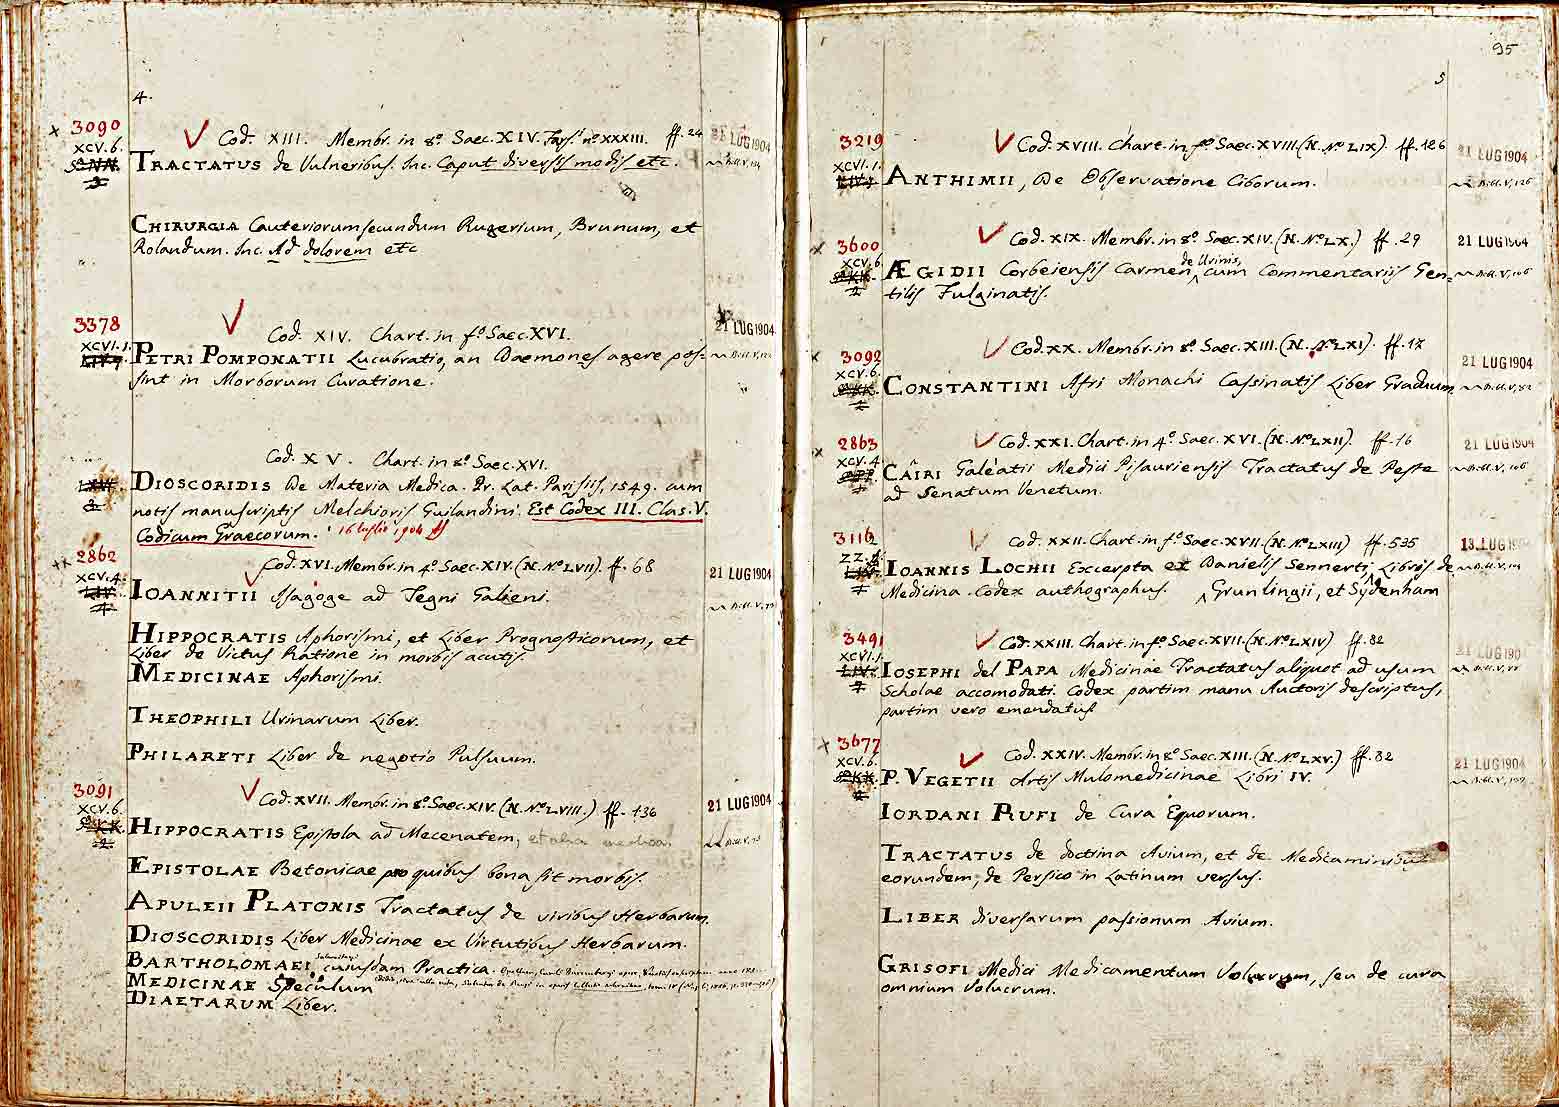 4.
× 3090
XCV.6.
Cod. XIII. Membr. in 8º Saec. XIV. Farsᵗ nº XXXIII. ff. 24
21 LUG 1904
TRACTATUS de Vulneribus. Inc. Caput diversis modis etc.
CHIRURGIA Cauteriorum secundum Rugerium, Brunum, et
Rolandum. Inc. Ad dolorem etc
3378
XCVI.1.
Cod. XIV. Chart. in fº Saec. XVI.
21 LUG 1904
PETRI POMPONATII Lucubratio, an Daemones agere pos=
sint in Morborum Curatione.
Cod. XV. Chart. in 8º Saec. XVI.
DIOSCORIDIS De Materia Medica. Pr. Lat. Parisiis, 1549. cum
notis manuscriptis Melchioris Guilandini. Est Codex III. Clas. V.
Codicum Graecorum. 16 luglio 1904
×× 2862
XCV.4.
Cod. XVI. Membr. in 4º Saec. XIV. (N. Nº LVII). ff. 68
21 LUG 1904
IOANNITII Isagoge ad Tegni Galieni.
HIPPOCRATIS Aphorismi, et Liber Prognosticorum, et
Liber de Victus Ratione in morbis acutis.
MEDICINAE Aphorismi.
THEOPHILI Urinarum Liber.
PHILARETI Liber de negotio Pulsuum.
3091
XCV.6.
Cod. XVII. Membr. in 8º Saec. XIV. (N. Nº LVIII.) ff. 136
21 LUG 1904
HIPPOCRATIS Epistola ad Mecenatem, et alia medica
EPISTOLAE Betonicae pro quibus bona sit morbis.
APULEII PLATONIS Tractatus de viribus Herbarum.
DIOSCORIDIS Liber Medicinae ex Virtutibus Herbarum.
BARTHOLOMAEI cuiusdam Practica.
MEDICINAE Speculum
DIAETARUM Liber.
95
5
3219
XCVI.1.
Cod. XVIII. Chart. in fº Saec. XVIII. (N. Nº LIX). ff. 126
21 LUG 1904
ANTHIMII, De Observatione Ciborum.
× 3600
XCV.6
Cod. XIX. Membr. in 8º Saec. XIV. (N. Nº LX.) ff. 29
21 LUG 1904
ÆGIDII Corbeiensis Carmen de Urinis, cum Commentariis Gen=
tilis Fulginatis.
× 3092
XCV.6.
Cod. XX. Membr. in 8º Saec. XIII. (N. Nº LXI). ff. 17
21 LUG 1904
CONSTANTINI Afri Monachi Cassinatis Liber Graduum.
× 2863
XCV.4
Cod. XXI. Chart. in 4º Saec. XVI. (N. Nº LXII). ff. 16
21 LUG 1904
CAÎRI Galeatii Medici Pisauriensis Tractatus de Peste
ad Senatum Venetum.
3116
Cod. XXII. Chart. in fº Saec. XVII. (N. Nº LXIII) ff. 535
13 LUG
IOANNIS LOCHII Excerpta ex Danielis Sennerti, Libris de
Medicina. Codex authographus. Grunlingii, et Sydenham
3491
XCVI.1
Cod. XXIII. Chart. in fº Saec. XVII. (N. Nº LXIV) ff. 82
21 LUG 190
IOSEPHI del PAPA Medicinae Tractatus aliquot ad usum
Scholae accomodati. Codex partim manu Auctoris descriptus,
partim vero emendatus
× 3677
XCV.6.
Cod. XXIV. Membr. in 8º Saec. XIII. (N. Nº LXV.) ff. 82
21 LUG 1904
P. VEGETII Artis Mulomedicinae Libri IV.
IORDANI RUFI de Cura Equorum.
TRACTATUS de doctrina Avium, et de Medicaminibus
eorundem, de Persico in Latinum versus.
LIBER diversarum passionum Avium.
GRISOFI Medici Medicamentum Volucrum, seu de cura
omnium Volucrum.